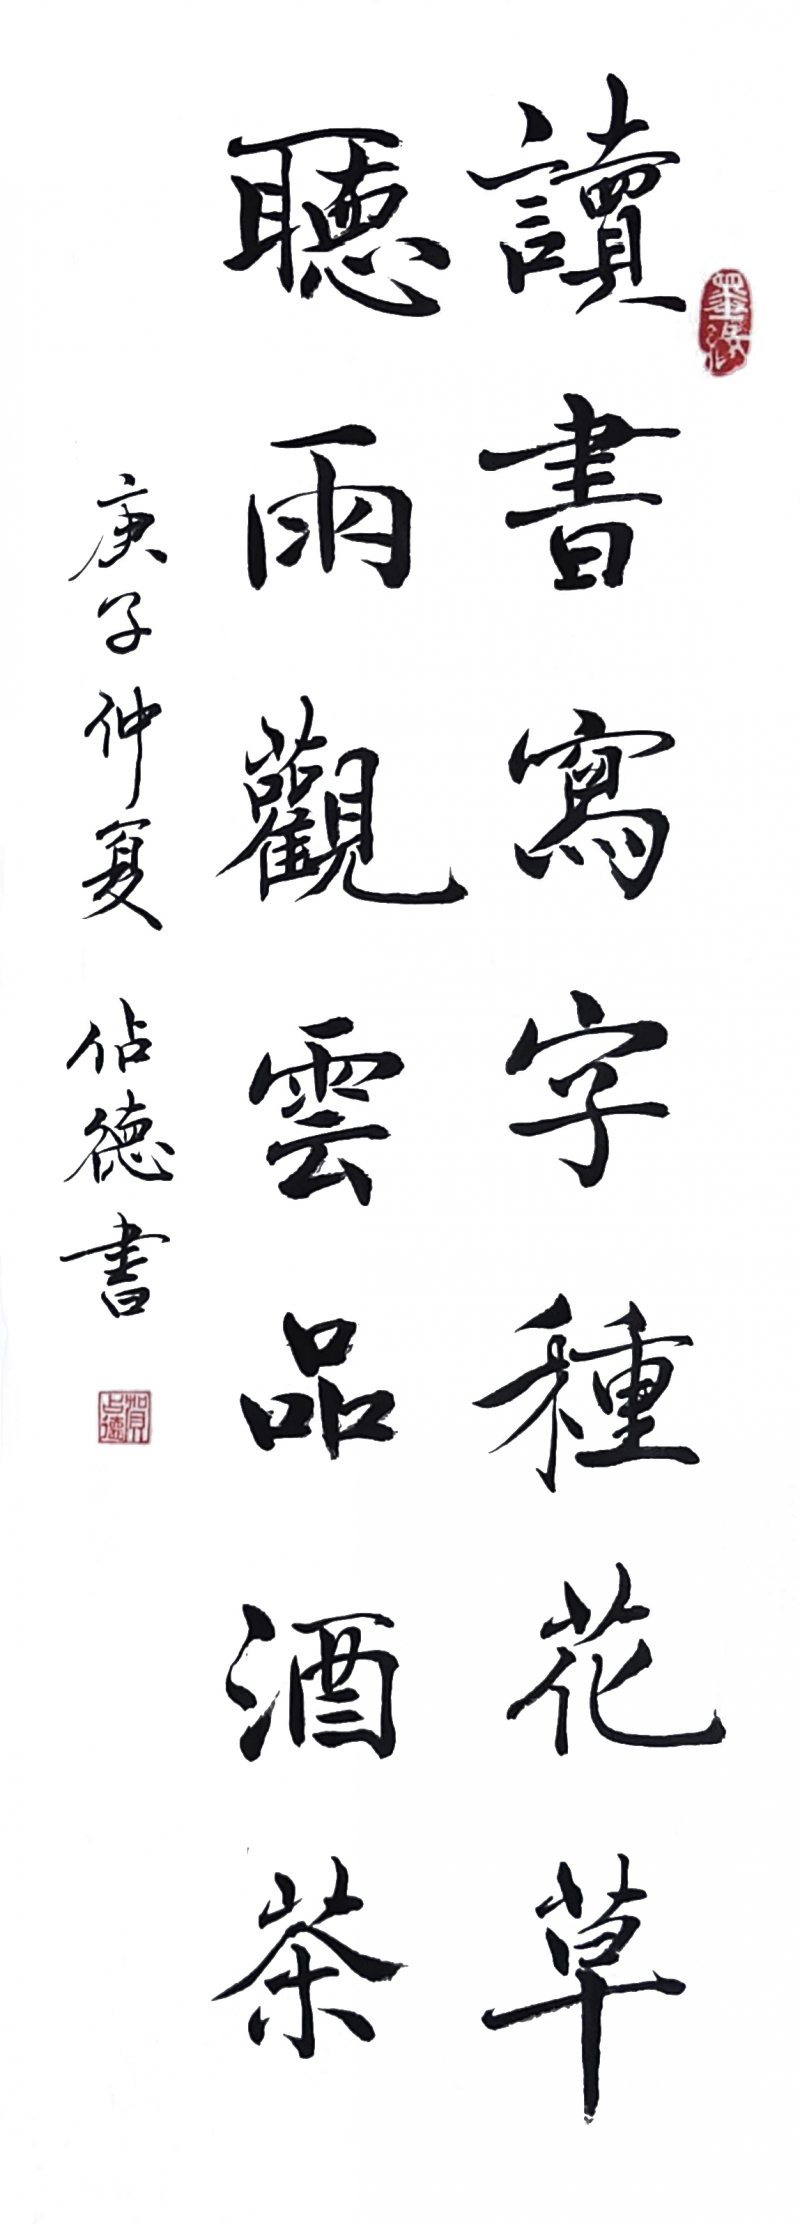 讀書寫字種花草
聽雨觀雲品酒茶
庚子仲夏 佔德書
賀占德